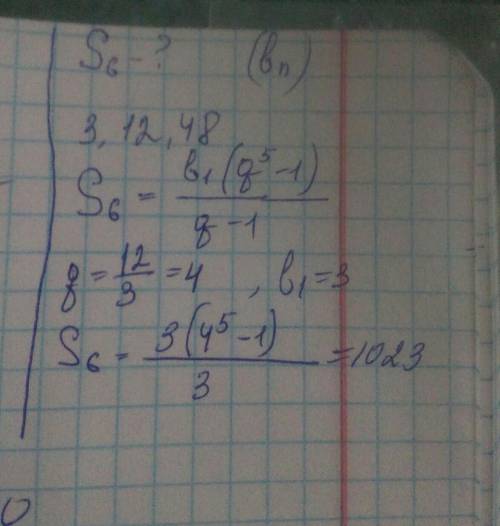 S₆ - ? (bₙ)
3, 12, 48
S₆ = b₁(q⁵ - 1) / q - 1
q = 12/3 = 4 , b₁ = 3
S₆ = 3(4⁵ - 1) / 3 = 1023
0